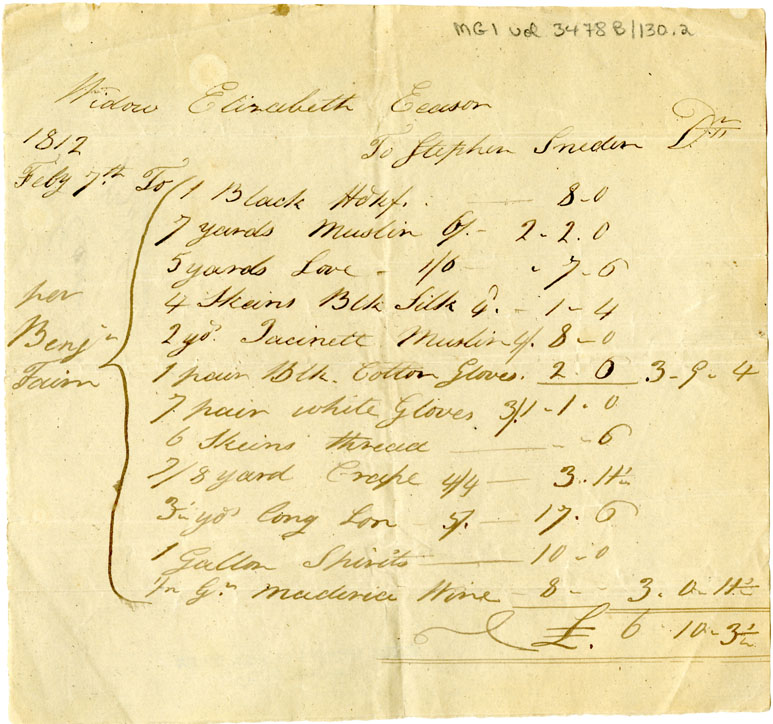 MG1 vol 3478B/130.2
Widow Elizabeth Eeason
1812 To Stephen Sneden Dr
Feby 7.th To 1 Black Hdkf. 8-0
7 yards Muslin 6/- 2-2-0
5 yards Love - 1/6 - 7-6
4 Skeins Blk Silk 4d. - 1-4
2 yds. Jacinett Muslin 4/. 8-0
1 pair Blk. Cotton Gloves. 2 0 .3-9-4
7 pair white Gloves 3/ 1-1-0
6 Skeins thread - 6
7/8 yard Crape 4/4 - 3.11½
3½ yds Long Lon 5/. - 17.6
1 Gallon Spirits 10-0
½ Gn Maderia Wine - 8 - 3.0-11½
£ 6-10-3½
per
Benjn
Fairn